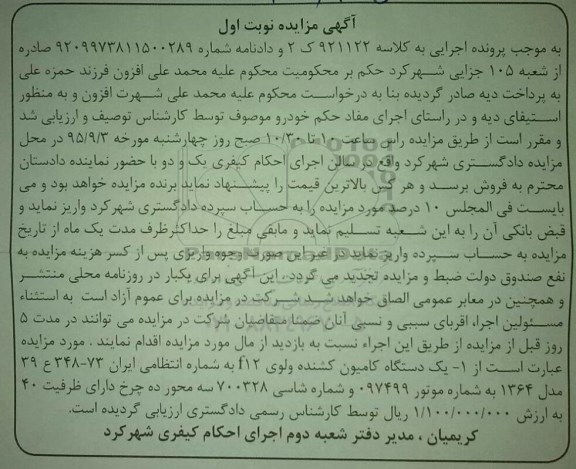 آگهی مزایده نوبت اول
به موجب پرونده اجرایی به کلاسه ۹۲۱۱۲۲ ک ۲ و دادنامه شماره ۹۲۰۹۹۷۳۸۱۱۵۰۰۲۸۹ صادره
از شعبه ۱۰۵ جزایی شهرکرد حکم بر محکومیت محکوم علیه محمد علی افزون فرزند حمزه علی
به پرداخت دیه صادر گردیده بنا به درخواست محکوم علیه محمد علی شهرت افزون و به منظور
استیفای دیه و در راستای اجرای مفاد حکم خودرو موصوف توسط کارشناس توصیف و ارزیابی شد
و مقرر است از طریق مزایده راس ساعت ۱۰ تا ۱۰/۳۰ صبح روز چهارشنبه مورخه ۹۵/۹/۳ در محل
مزایده دادگستری شهرکرد واقع در سالن اجرای احکام کیفری یک و دو با حضور نماینده دادستان
محترم به فروش برسد و هر کس بالاترین قیمت را پیشنهاد نماید برنده مزایده خواهد بود و می
بایست فی المجلس ۱۰ درصد مورد مزایده را به حساب سپرده دادگستری شهرکرد واریز نماید و
قبض بانکی آن را به این شعبه تسلیم نماید و مابقی مبلغ را حداکثر ظرف مدت یک ماه از تاریخ
مزایده به حساب سپرده واریز نماید در غیر این صورت وجوه واریزی پس از کسر هزینه مزایده به
نفع صندوق دولت ضبط و مزایده تجدید می گردد. این آگهی برای یکبار در روزنامه محلی منتشر
و همچنین در معابر عمومی الصاق خواهد شد شرکت در مزایده برای عموم آزاد است به استثناء
مسئولین اجرا، اقربای سببی و نسبی آنان ضمنا متقاضیان شرکت در مزایده می توانند در مدت ۵
روز قبل از مزایده از طریق این اجراء نسبت به بازدید از مال مورد مزایده اقدام نمایند . مورد مزایده
عبارت است از ۱- یک دستگاه کامیون کشنده ولوی f۱۲ به شماره انتظامی ایران ۷۳-۳۴۸ ع ۳۹
مدل ۱۳۶۴ به شماره موتور ۰۹۷۴۹۹ و شماره شاسی ۷۰۰۳۲۸ سه محور ده چرخ دارای ظرفیت ۴۰
به ارزش ۱/۱۰۰/۰۰۰/۰۰۰ ریال توسط کارشناس رسمی دادگستری ارزیابی گردیده است.
کریمیان ، مدیر دفتر شعبه دوم اجرای احکام کیفری شهرکرد